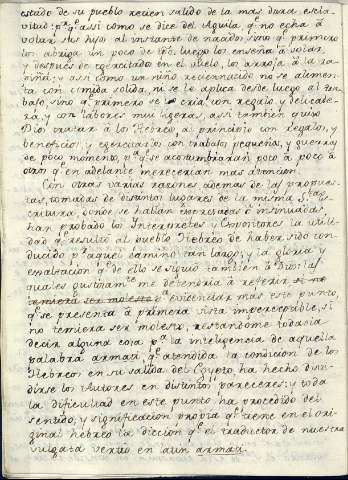 estado de su pueblo recien salido de la mas dura escla-
vitud: pr. q.e assi como se dice del Aguila, q.e no echa á
volar su hijo al instante de nacido, sino q.e primero
los abriga un poco de tpo. luego los enseña á volar,
y despues de egercitado en el vuelo, los arroja á la ra-
piña; y assi como un niño reciennacido no se alimen-
ta con comida solida, ni se le aplica desde luego al tra-
bajo, sino q.e primero se le cria con regalo, y delicade-
za, y con labores mui ligeras, assi tambien quiso
Dios tratar á los Hebreos al principio con regalos, y
beneficios, y egercitarlos con trabajos pequeños, y guerras
de poco momento, p.a q.e se acostumbraran poco á poco á
otros q.e en adelante merecerian mas atencion.
Con otras varias razones ademas de las propues-
tas, tomadas de distintos lugares de la misma S.ta Es-
critura, donde se hallan expressadas ó insinuadas
han probado los Interpretes y Expositores la utili-
dad q.e resultó al pueblo Hebreo de haber sido con-
ducido pr. aquel camino tan largo; y la gloria y
exaltacion q.e de ello se siguió tambien á Dios: las
quales gustosam.te me detendria á referir si no
temiera ser molesto á evidenciar mas este punto,
q.e se presenta á primera vista imperceptible, si
no temiera ser molesto, restandome todavia
decir alguna cosa p.a la inteligencia de aquella
palabra armati, q.e atendida la condicion de los
Hebreos en su salida del Egypto, ha hecho divi-
dirse los Autores en distintos pareceres; y toda
la dificultad en este punto ha procedido del
sentido, y significacion propia q.e tiene en el ori-
ginal hebreo la diccion q.e el traductor de nuestra
vulgata vertió en latin armati.